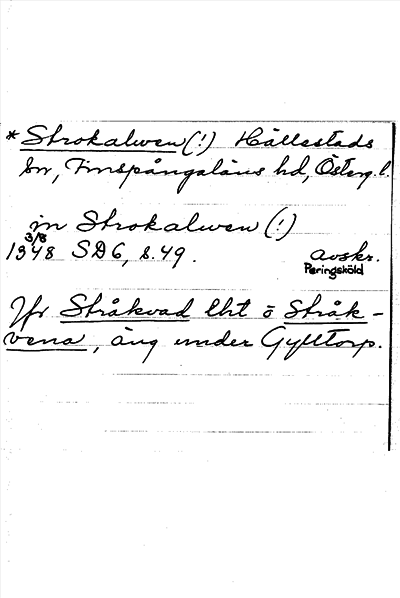 *Strokalwen(!) Hällestads
sn, Finspångaläns hd, Österg. l.
in Strokalwen (!)
3/8
1348 SD6, s. 49. avskr.
Peringsköld
Jfr Stråkvad lht ö Stråk-
vena, äng under Gylltorp.